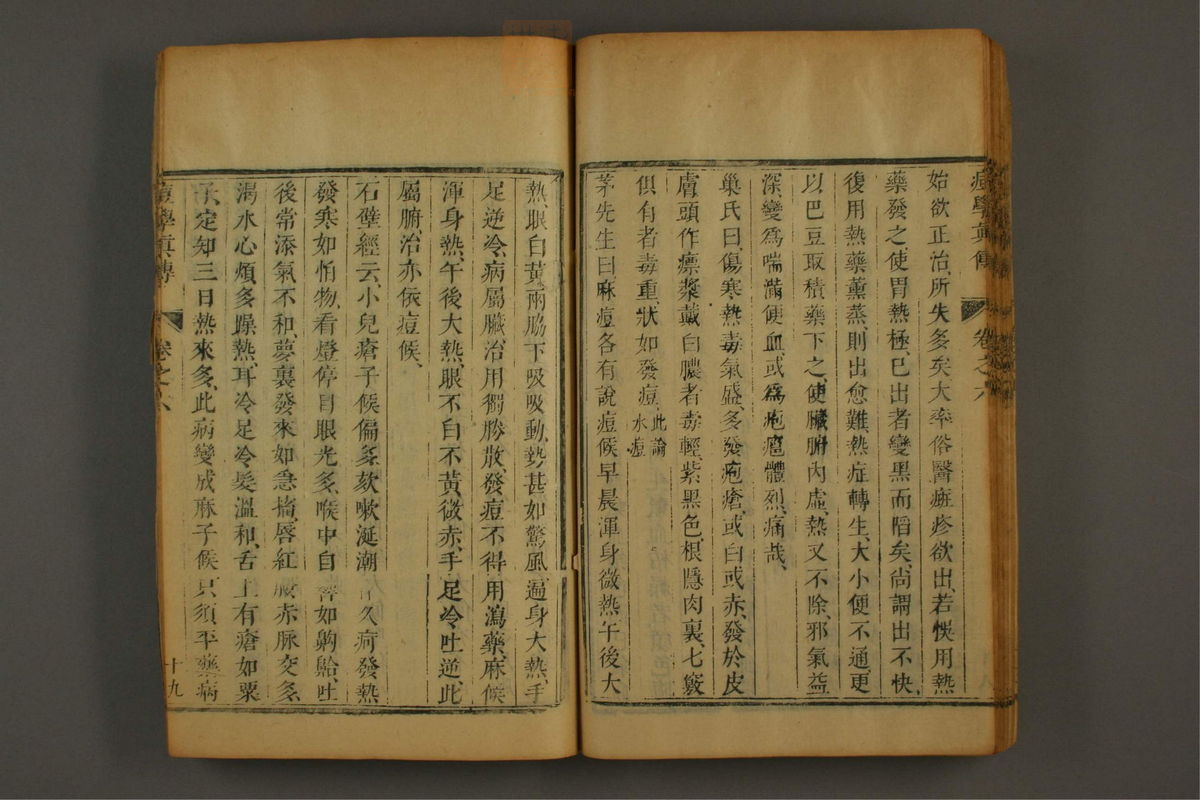 痘學真傳 卷之六
始欲正治所失多矣大率俗醫斑疹欲出若悞用熱
藥發之使胃熱極巳出者變黑而陷矣尚謂出不快
後用熱藥薰蒸則出愈難熱症轉生大小便不通更
以巴豆取積藥下之使臟腑內虛熱又不除邪氣益
深變爲喘滿便血或爲疱癰體烈痛哉
巢氏曰傷寒熱毒氣盛多發疱瘡或白或赤發於皮
膚頭作瘭漿戴白膿者毒輕紫黑色根隱肉裏七竅
俱有者毒重狀如發痘此論水痘
茅先生曰麻痘各有說痘候早晨渾身微熱午後大
熱眼白黃兩脇下吸吸動勢甚如驚風遍身大熱手
足逆冷病屬臟治用獨勝散發痘不得用瀉藥麻候
渾身熱午後大熱眼不白不黃微赤手足冷吐逆此
屬腑治亦依痘候
石壁經云小兒瘡子候偏多欬嗽涎潮久疴發熱
發寒如怕物看燈停目眼光多喉中自響如齁鮯吐
後常添氣不和夢裏發來如急搐唇紅赤脉交多
渴水心煩多躁熱耳冷足冷髮溫和舌上有瘡如粟
子定知三日熱來多此病變成麻子候只須平藥病
痘學真傳 卷之六 十九